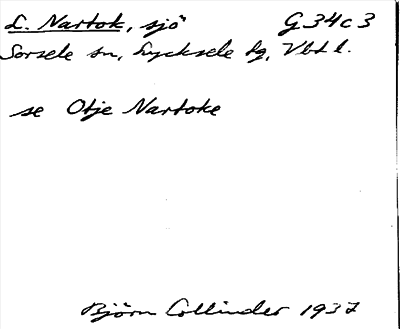 L. Nartok, sjö G34c3
Sorsele sn, Lycksele lg, Vbtl.
se Otje Nartoke
Björn Collinder 1937